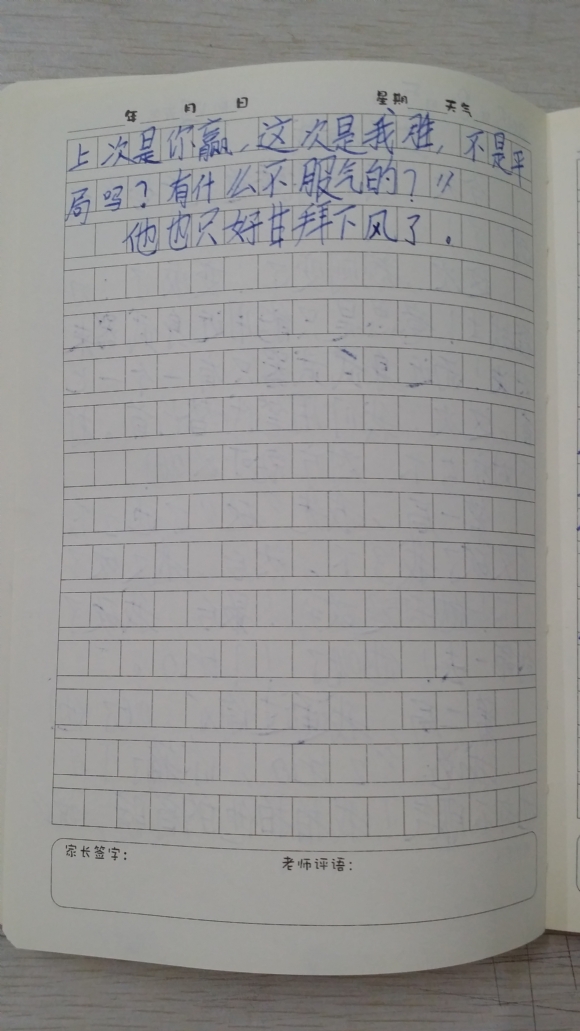 年 月 日 星期 天气
上次是你赢，这次是我难，不是平
局吗？有什么不服气的？”
他也只好甘拜下风了。
家长签字： 老师评语：